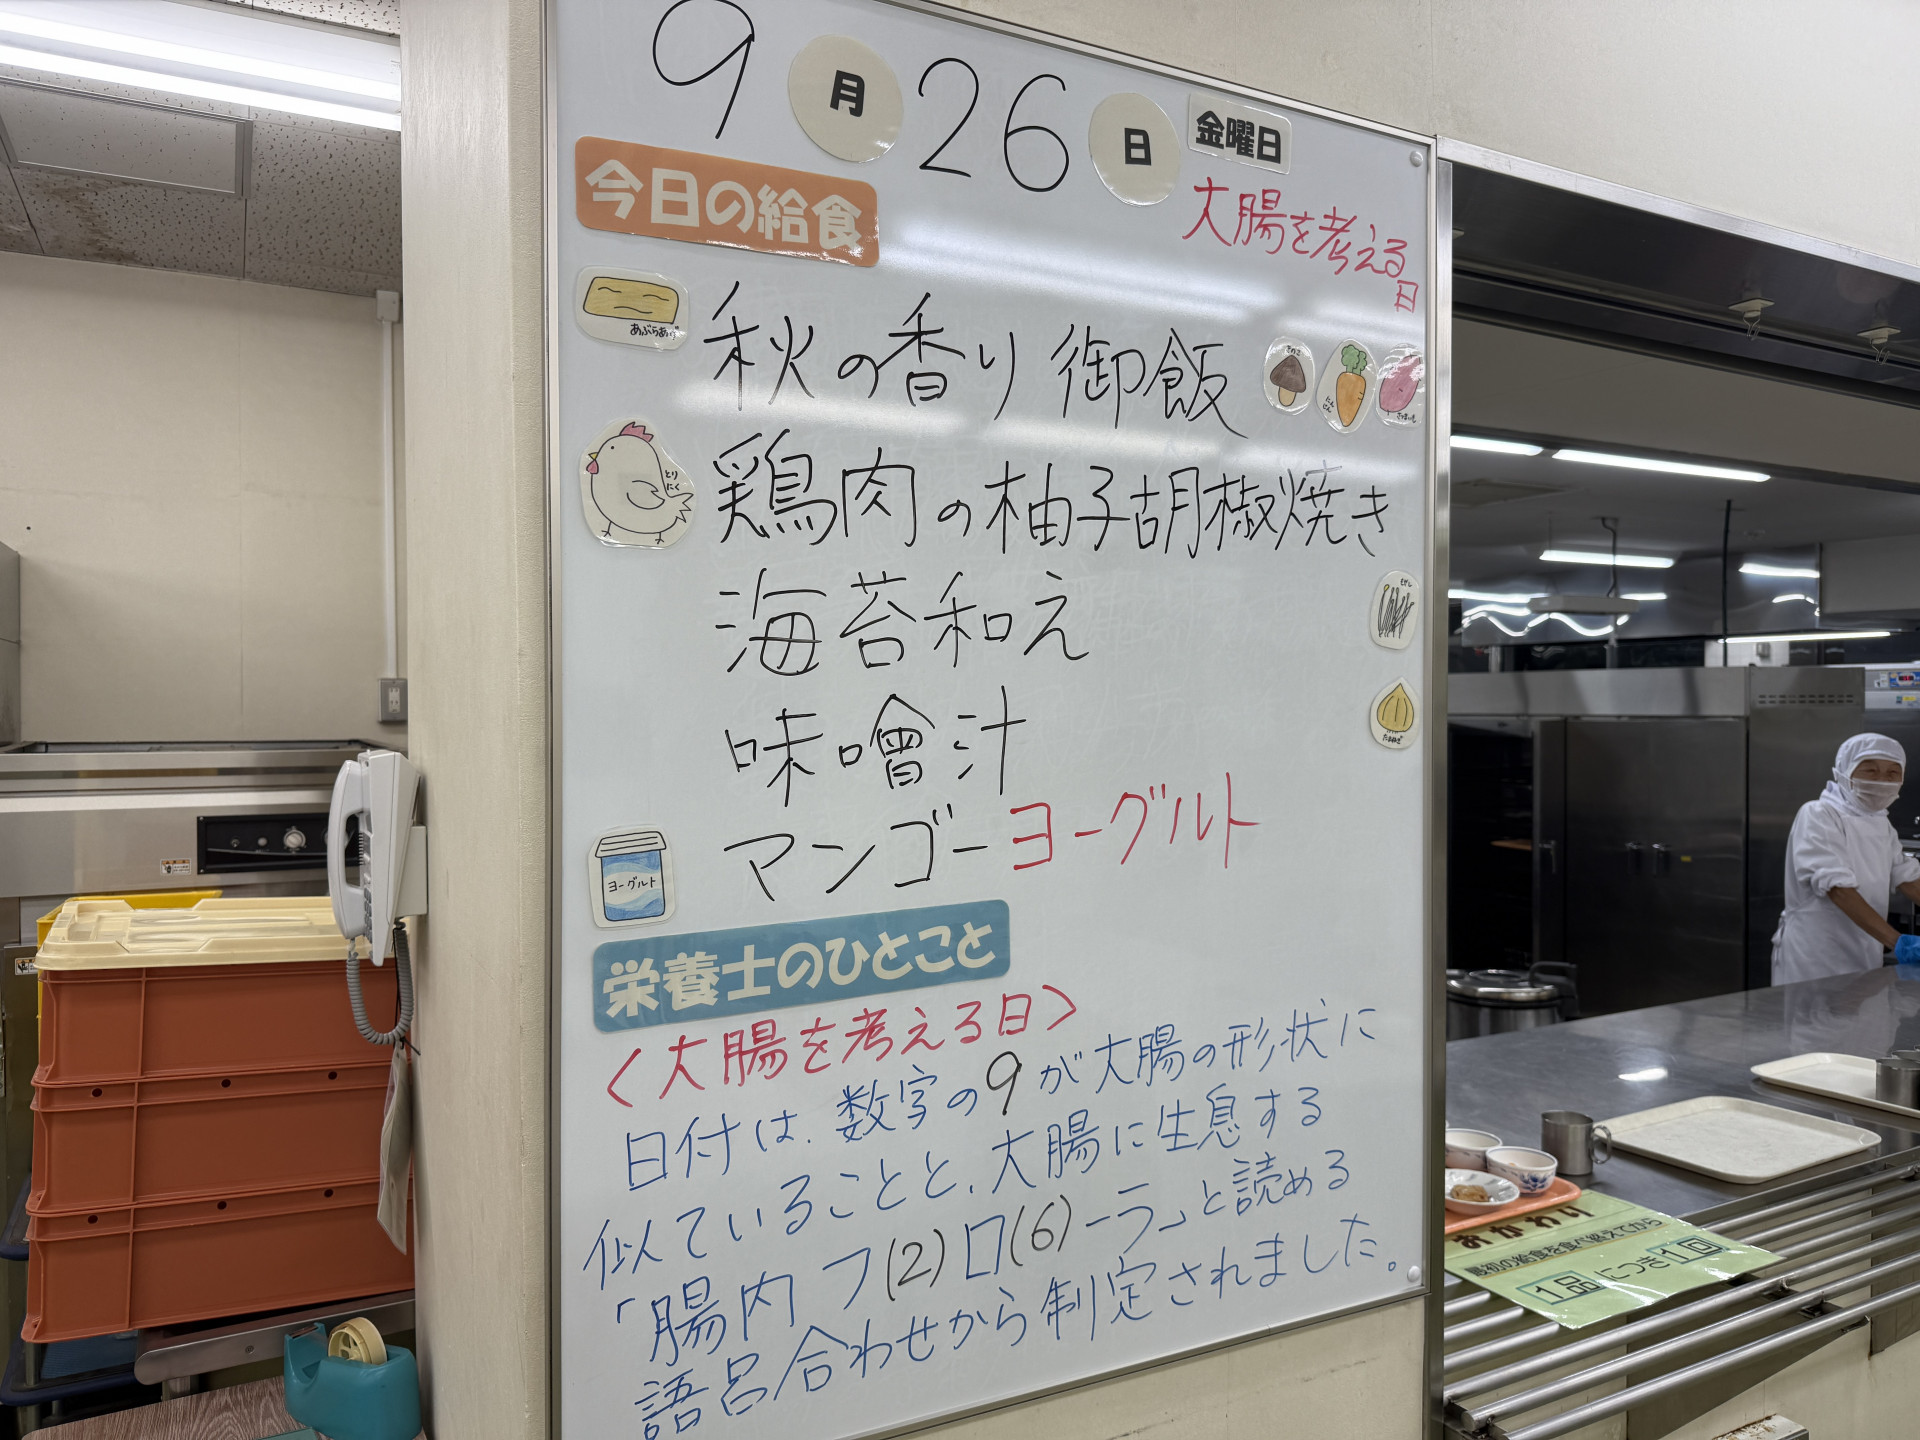 9月26日 金曜日
大腸を考える
日
今日の給食
あぶらあげ
秋の香り御飯
きのこ
にんじん
さつまいも
とりにく
鶏肉の柚子胡椒焼き
海苔和え
もやし
味噌汁
たまねぎ
マンゴーヨーグルト
ヨーグルト
栄養士のひとこと
〈大腸を考える日〉
日付は、数字の9が大腸の形状に
似ていることと、大腸に生息する
「腸内フ(2)ロ(6)ーラ」と読める
語呂合わせから制定されました。
おかわり
最初の給食を食べ終えてから
1品につき1回